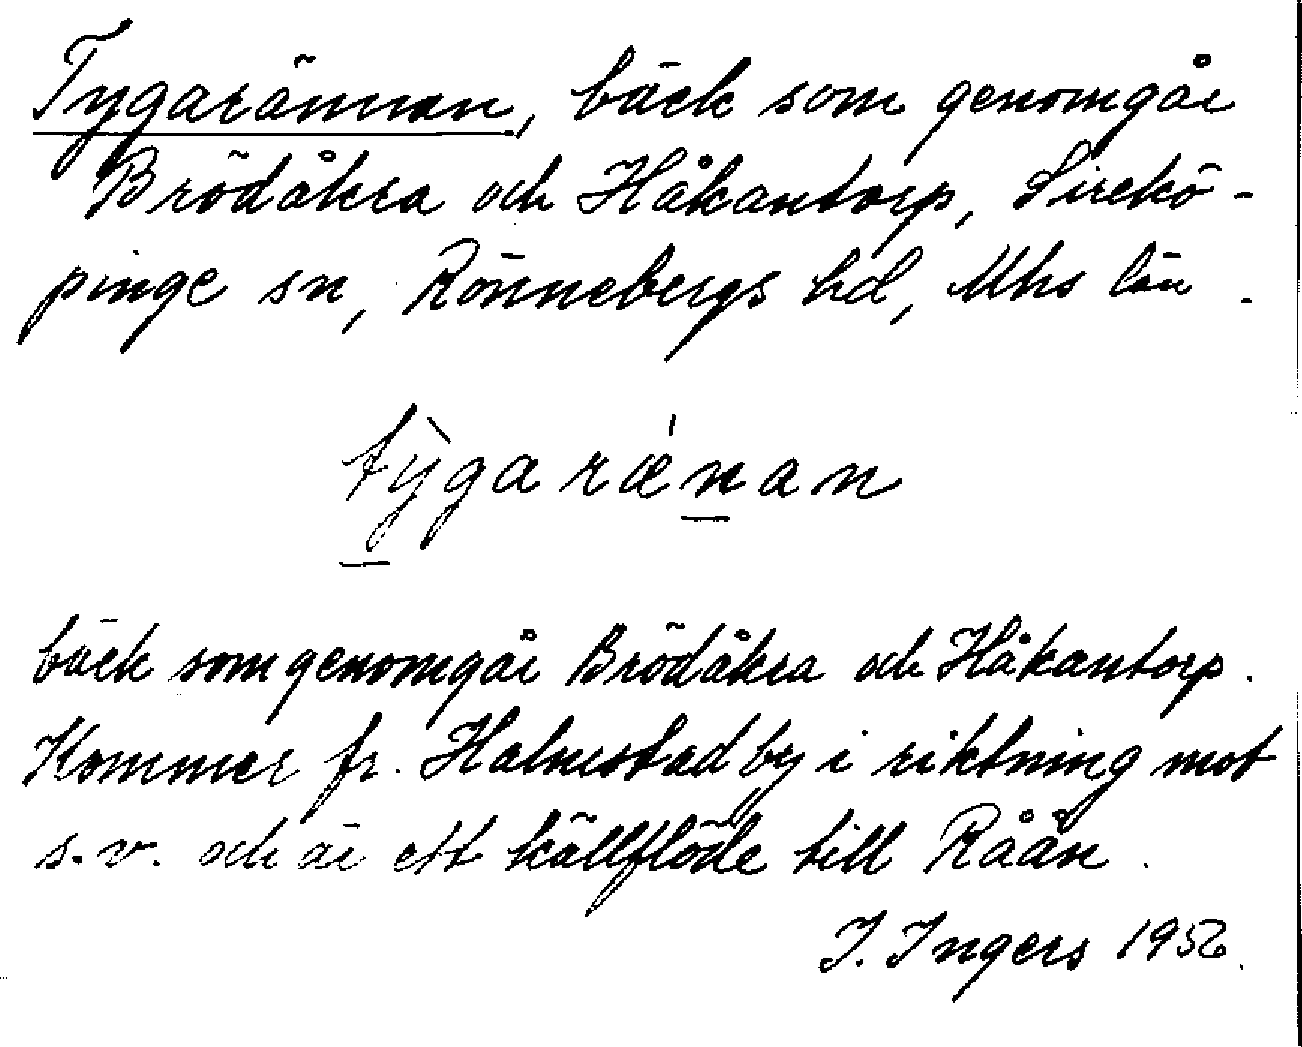 Tygarännan, bäck som genomgår
Brödåkra och Håkantorp, Sirekö-
pinge sn, Rönnebergs hd, Mhs län.
tỳgarænan
bäck som genomgår Brödåkra och Håkantorp.
Kommer fr. Halmstad by i riktning mot
s.v. och är ett källflöde till Råån.
I. Ingers 1956.